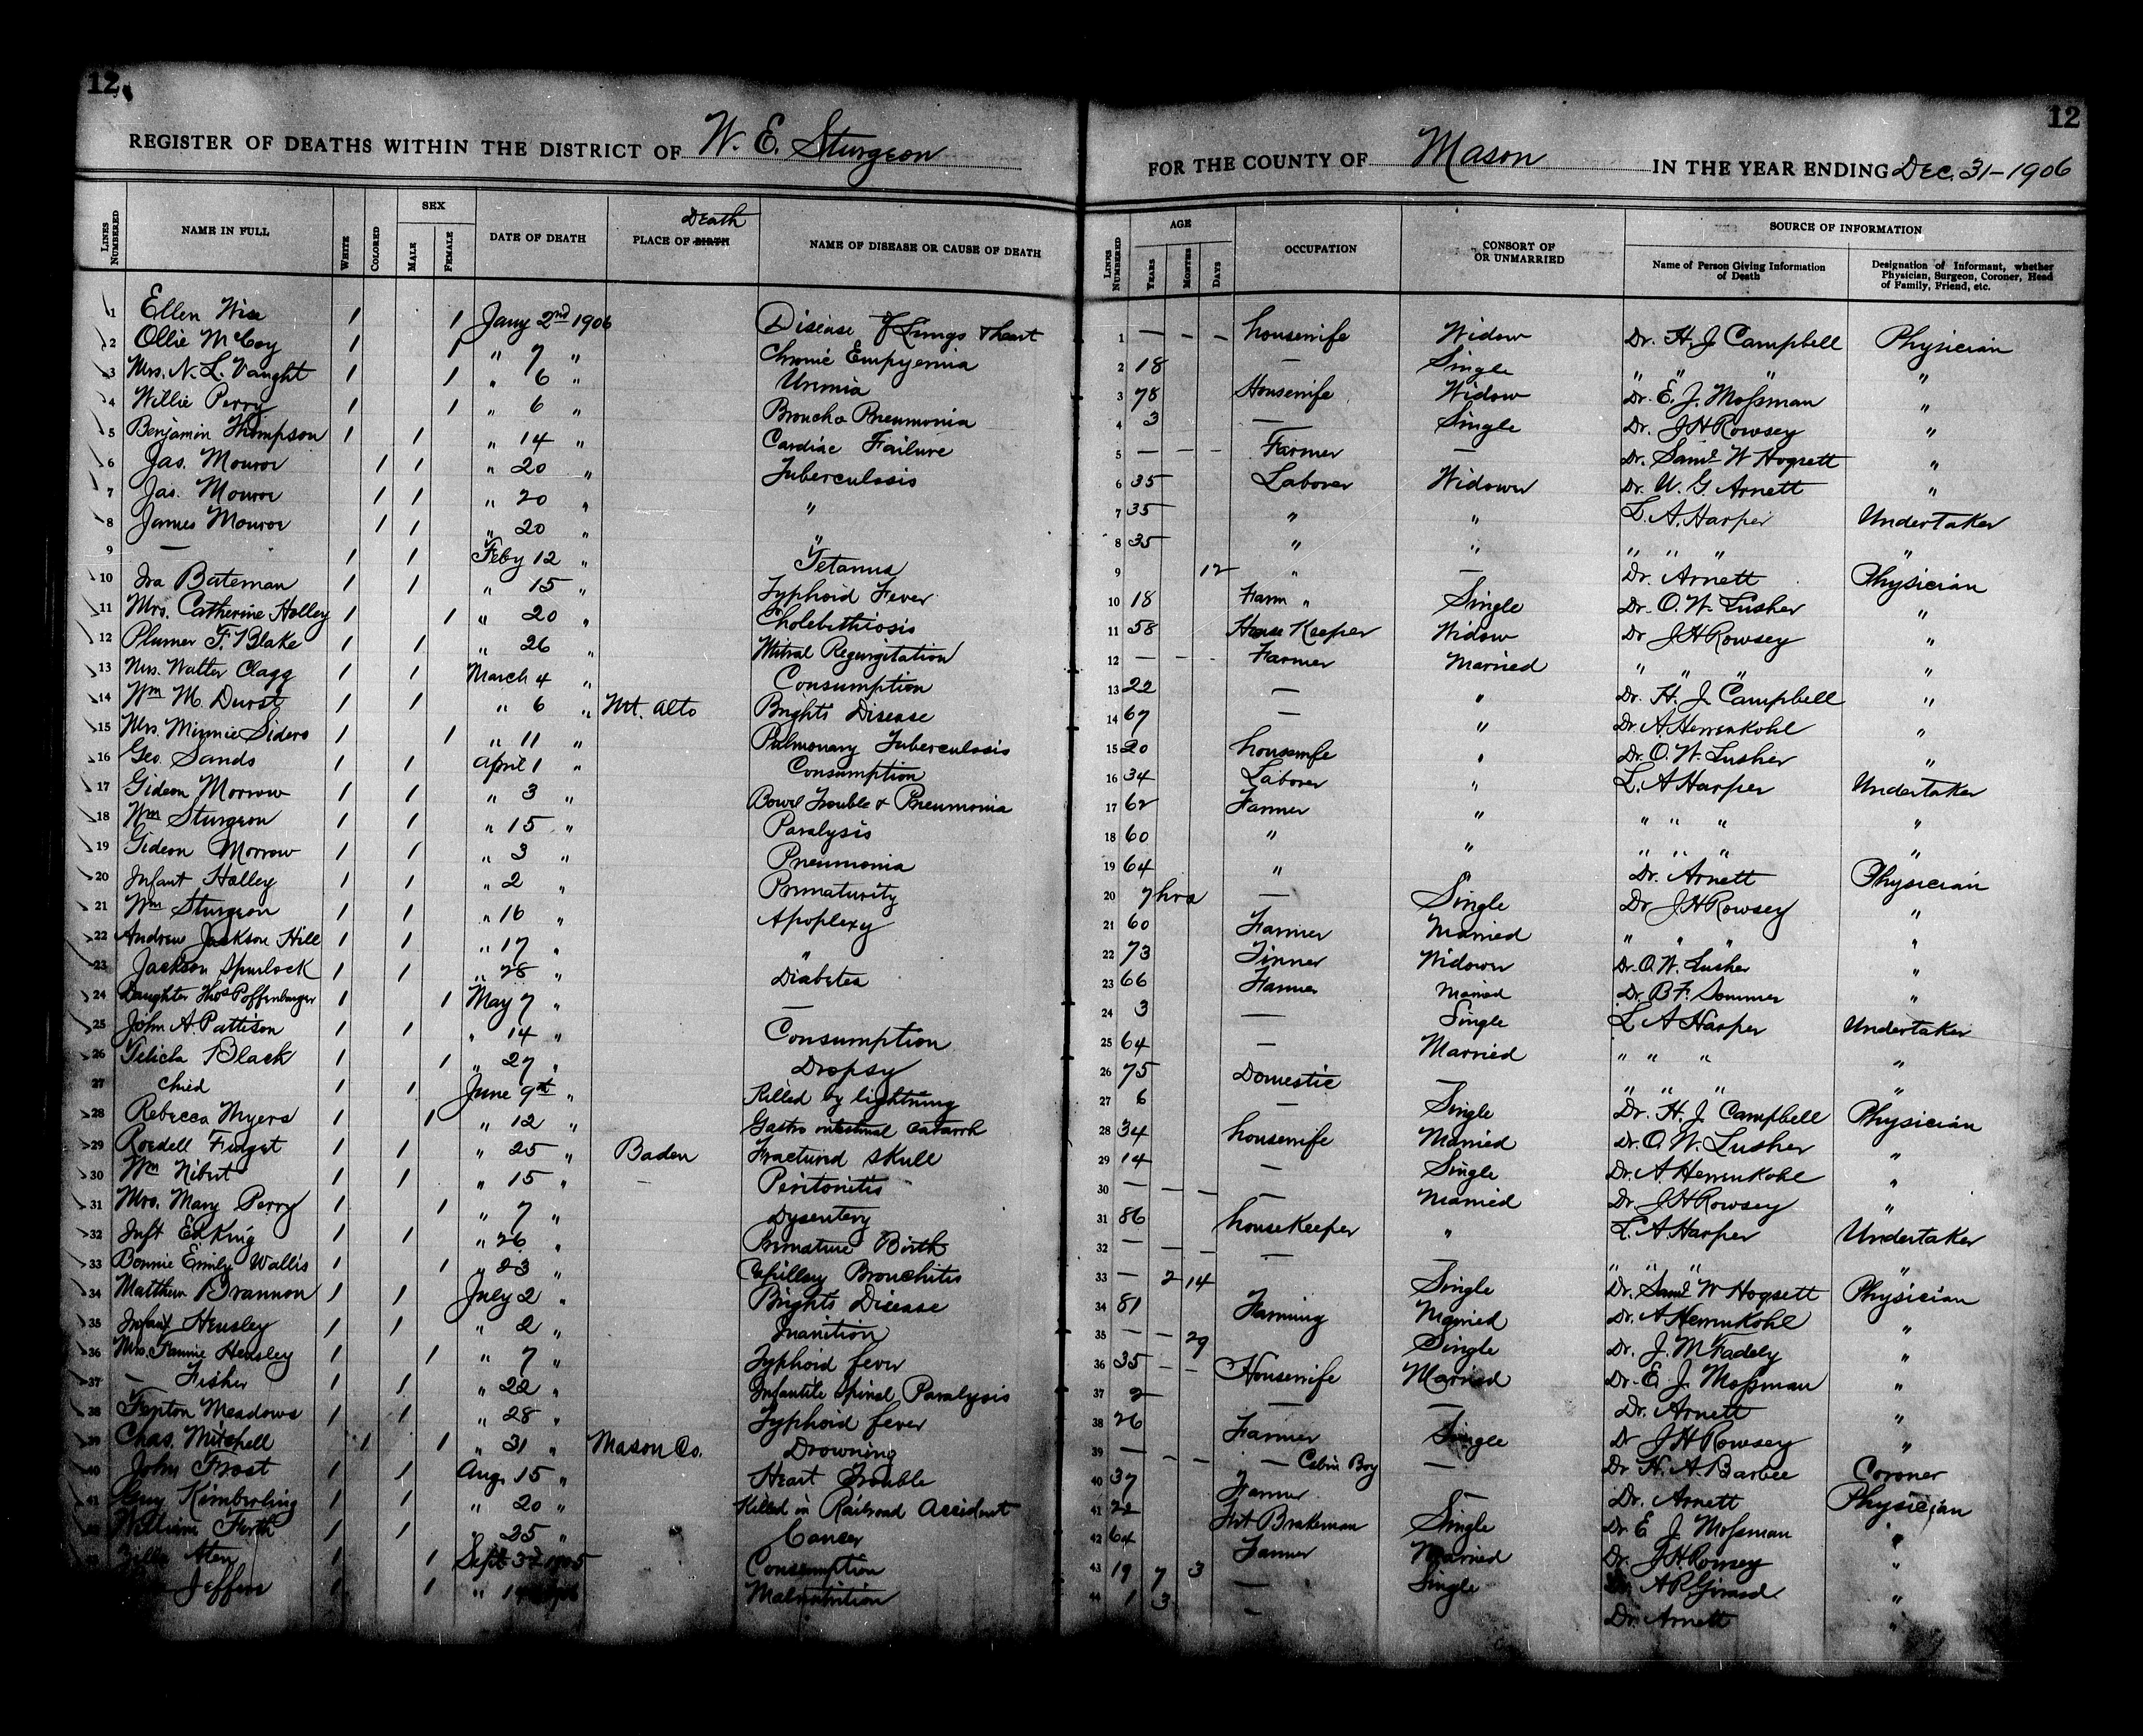 12
12
REGISTER OF DEATHS WITHIN THE DISTRICT OF W. E. Sturgeon
FOR THE COUNTY OF Mason IN THE YEAR ENDING Dec. 31-1906
LINES NUMBERED NAME IN FULL WHITE COLORED SEX MALE FEMALE DATE OF DEATH PLACE OF BIRTH Death NAME OF DISEASE OR CAUSE OF DEATH
LINES NUMBERED AGE YEARS MONTHS DAYS OCCUPATION CONSORT OF OR UNMARRIED SOURCE OF INFORMATION Name of Person Giving Information of Death Designation of Informant, whether Physician, Surgeon, Coroner, Head of Family, Friend, etc.
1 Ellen Wise / / Jany 2nd 1906 Disease of Lungs & heart
2 Ollie McCoy / / " 7 " Chronic Empyemia
3 Mrs. N. L. Vaught / / " 6 " Uremia
4 Willie Perry / / " 6 " Broncho Pneumonia
5 Benjamin Thompson / / " 14 " Cardiac Failure
6 Jas. Monroe / / " 20 " Tuberculosis
7 Jas. Monroe / / " 20 " "
8 James Monroe / / " 20 " "
9 — / / Feby 12 " Tetanus
10 Ira Bateman / / " 15 " Typhoid Fever
11 Mrs. Catherine Holley / / " 20 " Cholelithiosis
12 Plumer F. Blake / / " 26 " Mitral Regurgitation
13 Mrs. Walter Clagg / / March 4 " Consumption
14 Wm M. Durst / / " 6 " Mt. Alto Brights Disease
15 Mrs. Minnie Siders / / " 11 " Pulmonary Tuberculosis
16 Geo. Sands / / April 1 " Consumption
17 Gideon Morrow / / " 3 " Bowel Trouble & Pneumonia
18 Wm Sturgeon / / " 15 " Paralysis
19 Gideon Morrow / / " 3 " Pneumonia
20 Infant Holley / / " 2 " Prematurity
21 Wm Sturgeon / / " 16 " Apoplexy
22 Andrew Jackson Hill / / " 17 " "
23 Jackson Spurlock / / " 28 " Diabetes
24 Daughter Thos Poffenbarger / / May 7 " —
25 John A. Pattison / / " 14 " Consumption
26 Felicia Black / / " 27 " Dropsy
27 Child / / June 9th " Killed by lightning
28 Rebecca Myers / / " 12 " Gastro intestinal catarrh
29 Roedell Fudget / / " 25 " Baden Fractured skull
30 Wm Nibert / / " 15 " — Peritonitis
31 Mrs. Mary Perry / / " 7 " Dysentery
32 Inft Ed King / / " 26 " Premature Birth
33 Bonnie Emily Wallis / / " 23 " Capillary Bronchitis
34 Matthew Brannon / / July 2 " Brights Disease
35 Infant Hensley / / " 2 " Inanition
36 Mrs. Fannie Hensley / / " 7 " Typhoid fever
37 — Fisher / / " 22 " Infantile Spinal Paralysis
38 Fenton Meadows / / " 28 " Typhoid fever
39 Chas. Mitchell / / " 31 " Mason Co. Drowning
40 John Frost / / Aug. 15 " Heart Trouble
41 Guy Kimberling / / " 20 " Killed in Railroad Accident
42 William Firth / / " 25 " Cancer
Aten / / Sept 1905 Consumption
Jeffers / / " Malnutrition
1 — — — housewife Widow Dr. H. J. Campbell Physician
2 18 — Single " " " "
3 78 Housewife Widow Dr. E. J. Mossman "
4 3 — Single Dr. J H Rowsey "
5 — — — Farmer — Dr. Saml W Hogsett "
6 35 Laborer Widower Dr. U. G. Arnett "
7 35 " " L. A. Harper Undertaker
8 35 " " " " " "
9 12 " — Dr. Arnett Physician
10 18 Farm " Single Dr. O. W. Lusher "
11 58 House Keeper Widow Dr J H Rowsey "
12 — — - Farmer Married " " " "
13 22 — " Dr. H. J. Campbell "
14 67 — " Dr. A Herrenkohl "
15 20 housewife " Dr. O. W. Lusher "
16 34 Laborer " L. A Harper Undertaker
17 62 Farmer " " " " "
18 60 " " " " " "
19 64 " Dr. Arnett Physician
20 7 hrs — Single Dr J H Rowsey "
21 60 Farmer Married " " " "
22 73 Tinner Widower Dr. O. W. Lusher "
23 66 Farmer Married Dr. B F. Sommer "
24 3 — Single L A Harper Undertaker
25 64 — Married " " " "
26 75 Domestic — " " " "
27 6 — Single Dr. H. J. Campbell Physician
28 34 housewife Married Dr. O. W. Lusher "
29 14 — Single Dr. A. Herrenkohl "
30 — — — — Married Dr. J H Rowsey "
31 86 housekeeper " L. A. Harper Undertaker
32 — — — — " " " "
33 — 2 14 Single Dr. Saml W Hogsett Physician
34 81 Farming Married Dr. A Herrenkohl "
35 — — 29 Single Dr. J. M Fadely "
36 35 - — Housewife Married Dr. E. J. Mossman "
37 2 — — Dr. Arnett "
38 26 Farmer Single Dr J H Rowsey "
39 — - - — Cabin Boy — Dr H. A. Barbee Coroner
40 37 Farmer — Dr. Arnett Physician
41 22 Frt Brakeman Single Dr E J Mossman "
42 64 Farmer Married Dr. J H Rowsey "
43 19 7 3 — Single A P Girard "
44 1 3 - Dr. Arnett "